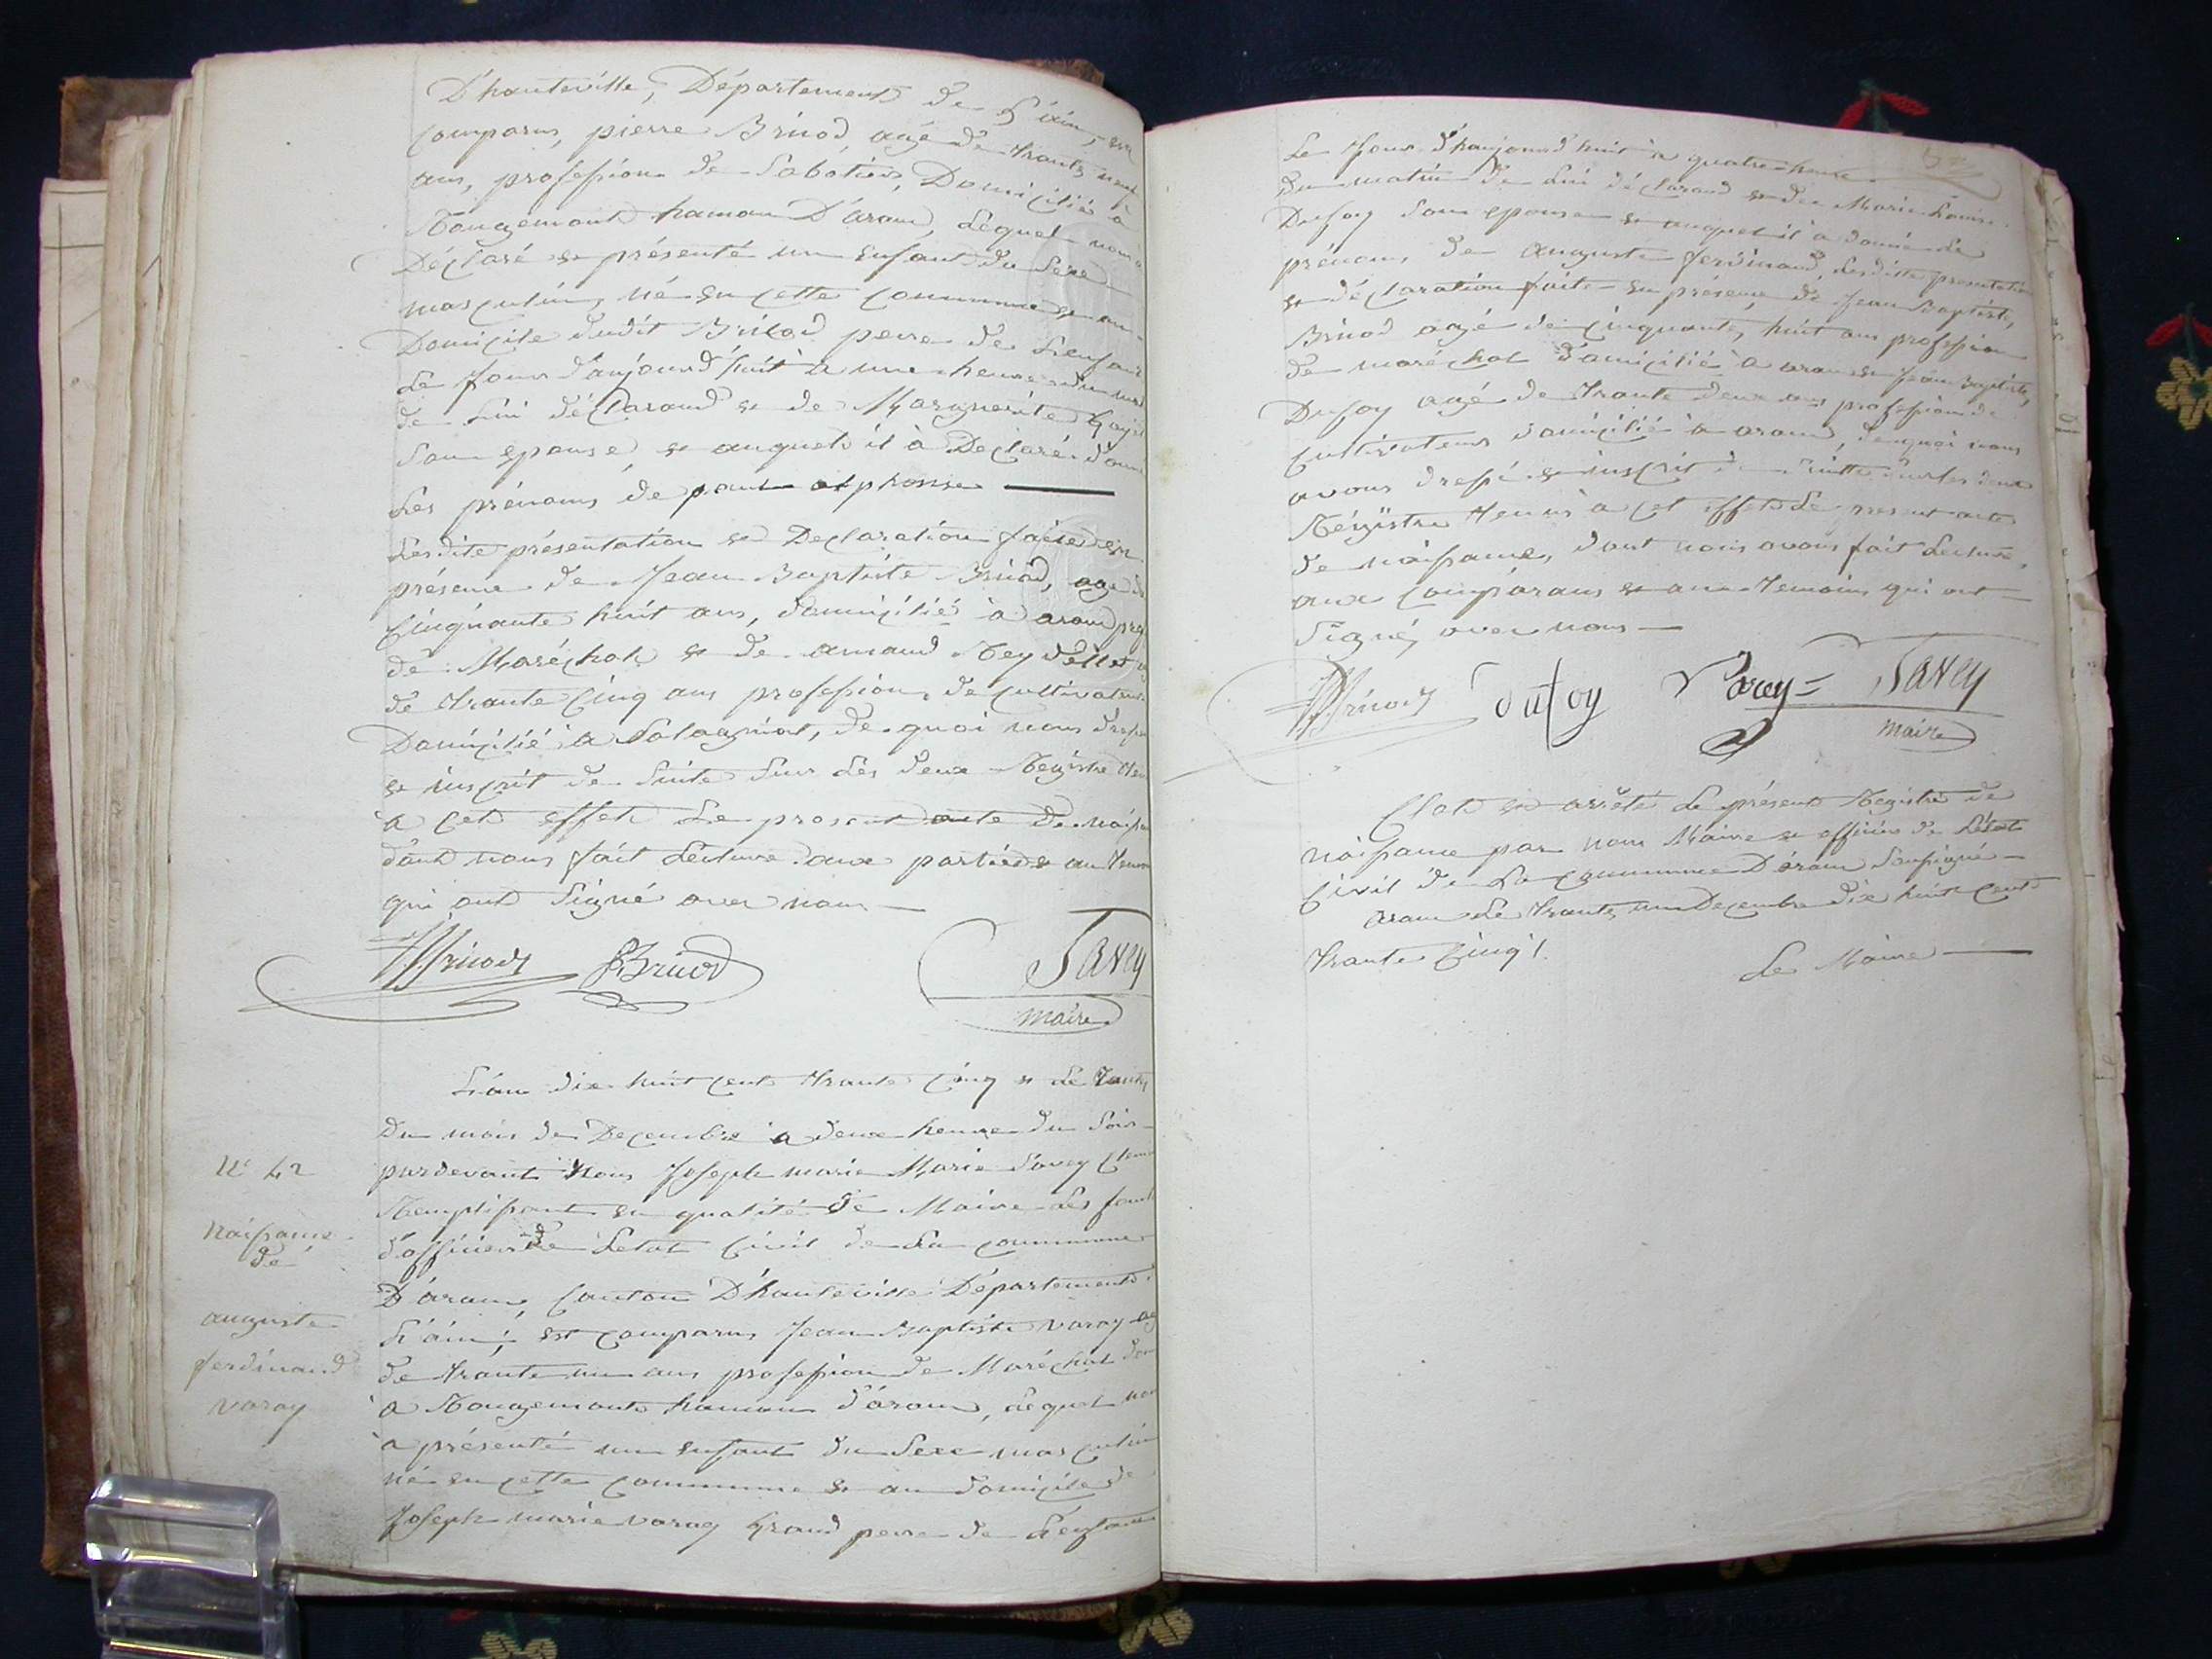 D'hauteville, Département de L'ain, est
comparus, pierre Brinod, agé de trante neuf
ans, profession de Sabotier, Domicilié à
Rougemont hamau D'aram, Lequel nous a
Déclaré et présenté un enfant du Sexe
masculin, né en cette commune et au
Domicile dudit Brinod perre de L'enfant
Le Jour d'aujourd'huit à une heure du
de Lui déclarand et de Marguerite
Son epouse, et auquel il à Déclaré donné
Les prénoms de paul alphonse
Lesdite présentation et Declaration faite en
présence de Jean Baptiste Brinod, agé de
Cinquante huit ans, domicilié à aram prof
de Maréchal et de amand Reydellet
de trante Cinq ans profession de cultivateur
Domicilié à Salagniat, de quoi nous dressé
et inscrit de Suite Sur Les deux Registre tenu
à cet effet Le present acte de naissa
dont nous fait Lecture aux partie et au temoin
qui ont Signé avec nous
JBrinod PBrinod Savey
maire
L'an dix huit cent trante Cinq et Le trante
Du mois de Decembre a deux heure du Soir
N° 42 pardevant Nous Joseph marie Marie Savey
Remplissant en qualité de Maire Les fonct
Naissance d'officier de Letat Civil de La commune
de
D'aram, Canton D'hauteville Département
auguste L'ain, est comparus Jean Baptiste varay ag
ferdinand de trante un ans profession de Maréchal dom
varay à Rougemont hamau d'aram, Lequel nou
a présenté un enfant du Sexe masculin
né en cette commune et au domicile de
Joseph marie varay Grand perre de L'enfant
Le Jour d'haujourd'huit à quatre heure
Du matin de Lui déclarand et de Marie Louise
Dufoy Son epouse et auquel il a donné Le
prénoms de auguste ferdinand, Lesdite presentation
et déclaration faite en présence de Jean Baptiste,
Brinod agé de Cinquante, huit ans profession
de maréchal domicilié à aram et Jean Baptiste,
Dufoy agé de trante deux ans profession de
Cultivateur domicilié à aram, de quoi nous
avons dressé et inscrit de suitte Sur Les deux
Régistre tenus à cet effet Le present acte
de naissance, dont nous avons fait Lecture,
aux comparans et aux temoins qui ont
Signé, avec nous
JBrinod Dufoy Varay Savey
maire
Clot et arrêté Le présent Registre de
naissance par nous Maire et officier de Létat
Civil de La commune D'aram Soussigné
aram Le trante, un Decembre dix huit Cent
trante Cinq /.
Le Maire